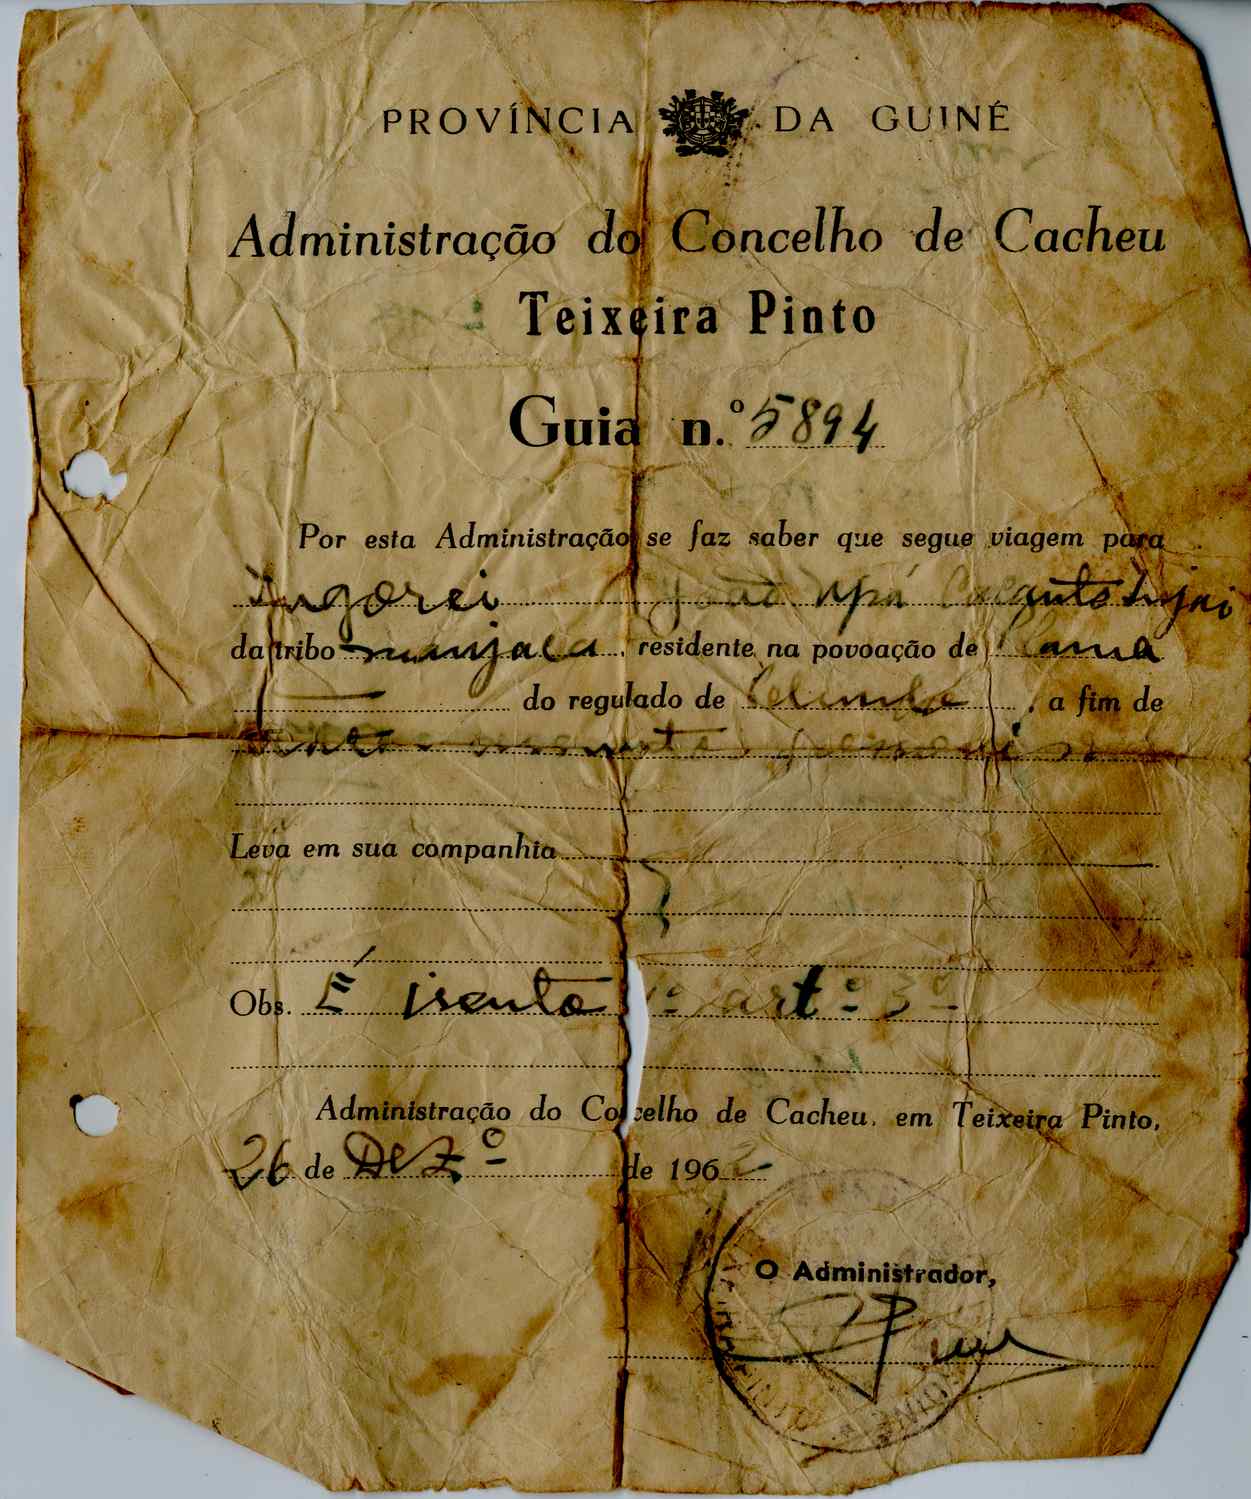 PROVÍNCIA DA GUINÉ
Administração do Concelho de Cacheu
Teixeira Pinto
Guia n.º 5894
Por esta Administração se faz saber que segue viagem para
Ingorei João
da tribo manjaca, residente na povoação de
do regulado de , a fim de
Leva em sua companhia
Obs. É isento art.º 3º
Administração do Concelho de Cacheu, em Teixeira Pinto,
26 de Dezº de 196
O Administrador,